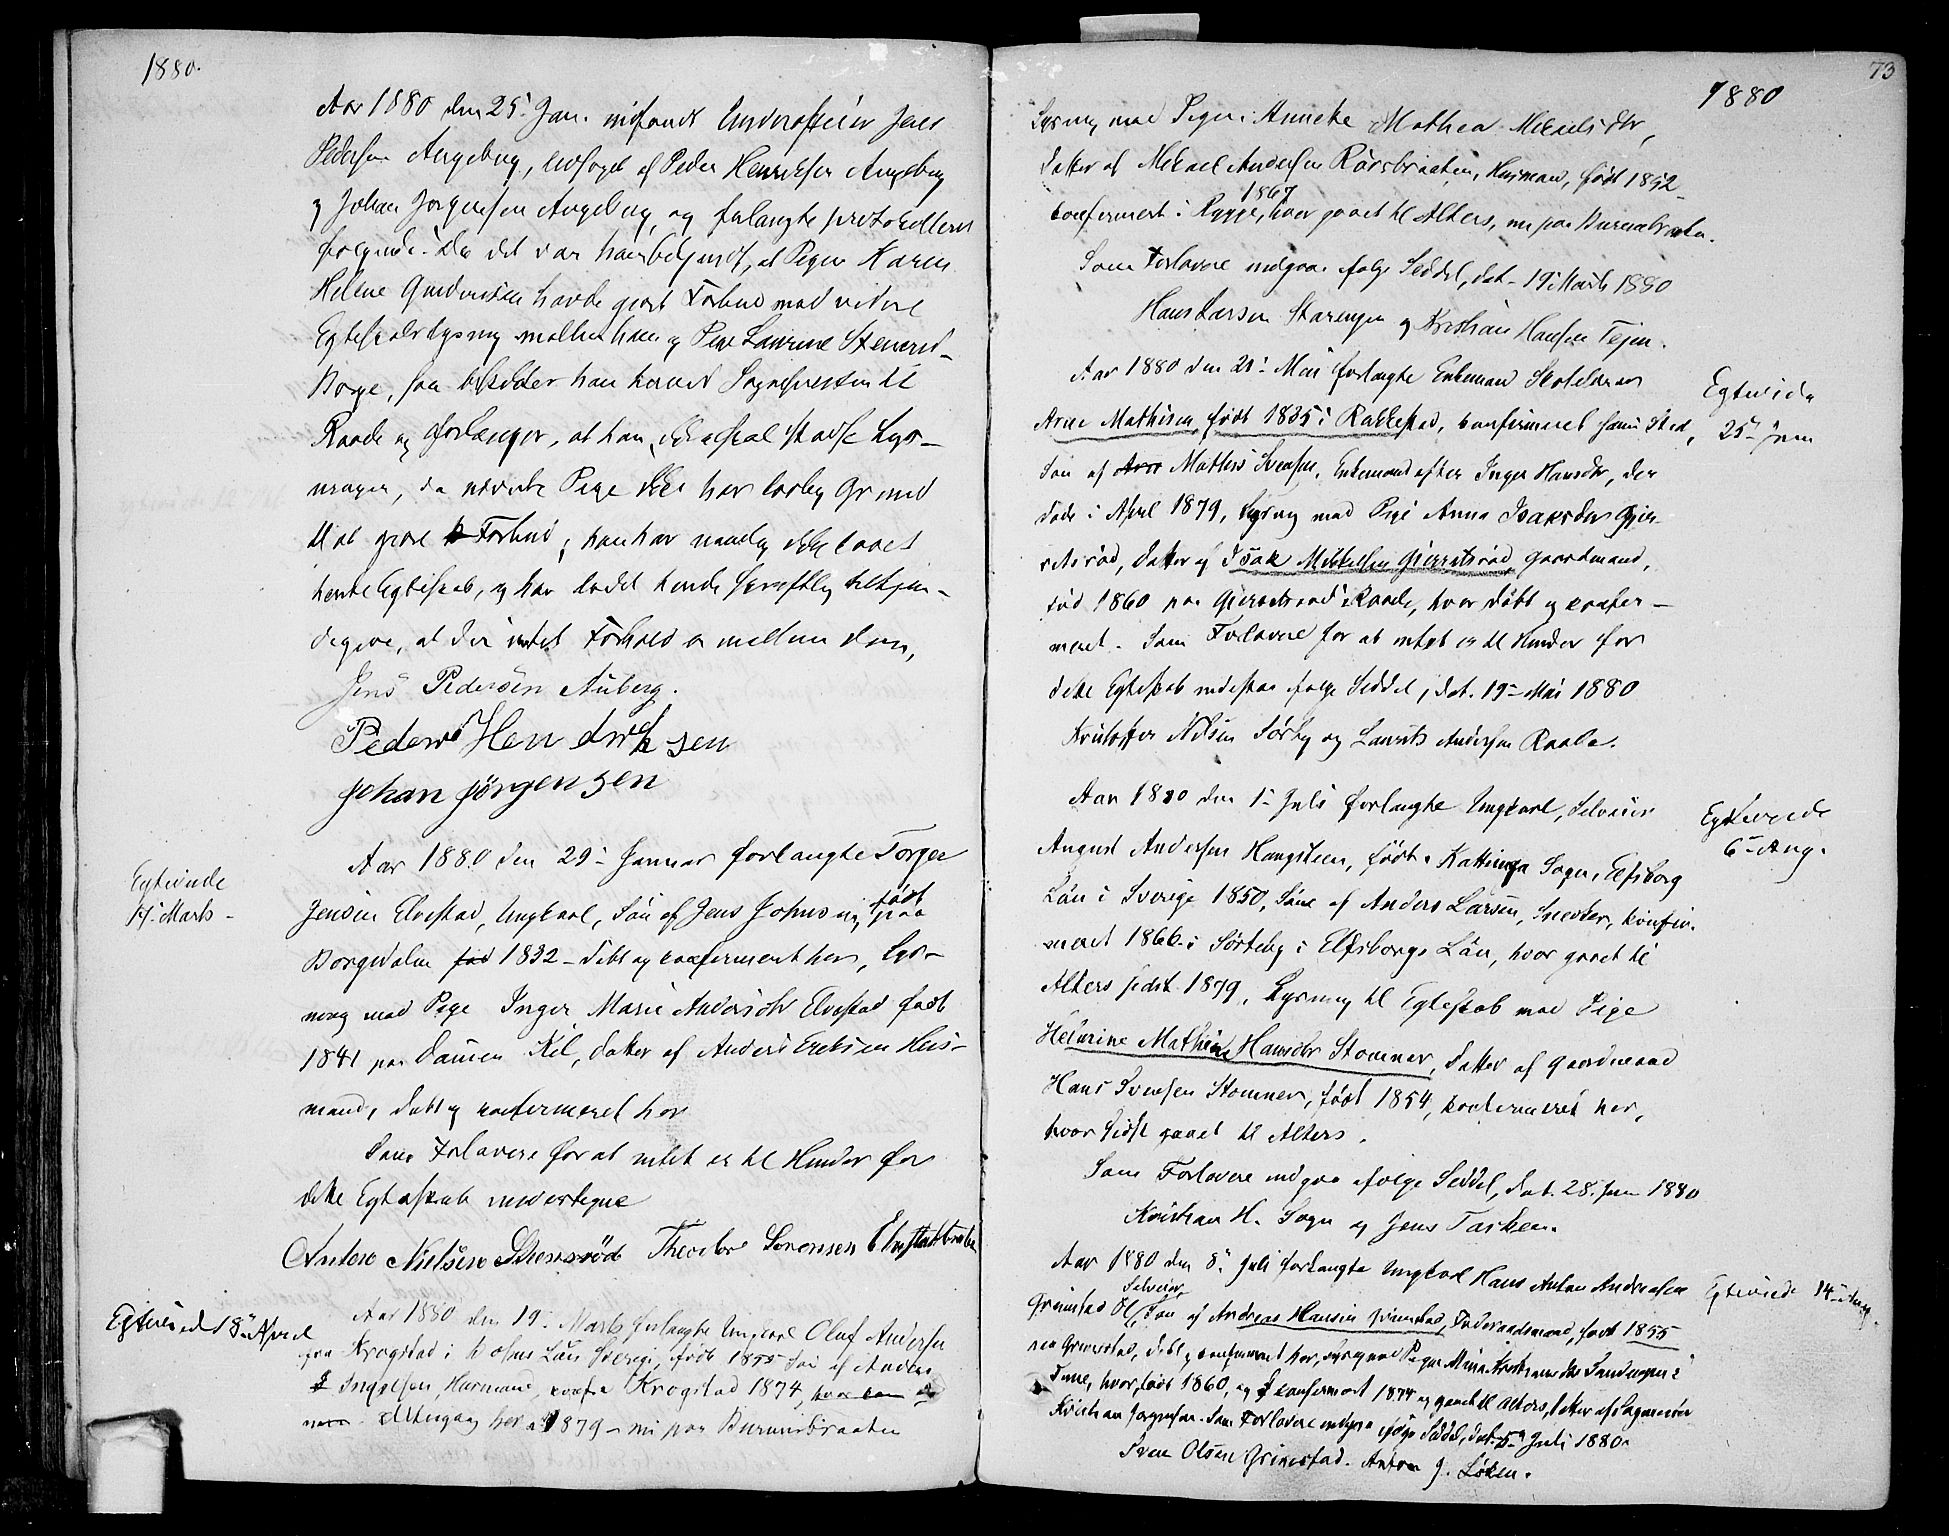 1880.
Aar 1880 den 25. Jan. indfandt Underofficier Jens
Pedersen Augebyg, ledsaget af Peder Henriksen Augebyg
og Johan Jørgensen Augebyg, og forlangte protokolleret
følgende: Da det var ham bekjendt, at Pigen Karen
Helene Gundersen havde gjort Forbud mod videre
Egteskabslysning mellem ham og Pige Laurine Stenerød
Borge, saa bestedder han herved Sognepresten til
Raade og forlanger, at han ikke skal standse Lys-
ningen, da nævnte Pige ikke har lovlig Grund
til at gjøre Forbud; han har nemlig ikke lovet
hende Egteskab, og har ladet hende skriftlig tilkjen-
degive, at der intet Forhold er mellem dem,
Jens Pedersen Auberg.
Peder Hendriksen
Johan Jörgensen
Egteviede
14. Marts
Aar 1880 den 29. Januar forlangte Torger
Jensen Elvestad, Ungkarl, Søn af Jens Johnsen, født paa
Borgedalen fød 1832 døbt og confirmeret her, Lys-
ning med Pige Inger Marie Andersdtr Elvestad født
1841 paa Damen Kil, datter af Anders Eriksen Hus-
mand, døbt og confirmeret her
Som Forlovere for at intet er til Hinder for
dette Egteskab undertegne
Anton Nielsen Stenerød Theodor Sorensen Elvestadbraten
Egteviede 18. April
Aar 1880 den 19. Marts forlangte Ungkarl Oluf Andersen
fra Krogstad i Bohus Län Sverige, født 1855 Søn af Anders
Ingelsen, Husmand, confir Krogstad 1874, hvor han og
Altergang her 1879 - nu paa Bureusbraaten
73
1880
Lysning med Pigen Anneke Mathea Mikaelsdtr,
datter af Mikael Andersen Rörsbraaten, Husmand, født 1852
confirmeret i Rygge, 1867 hvor gaaet til Alters, nu paa Bureusbraaten.
Som Forlovere indgaar ifølge Seddel, dat. 19. Marts 1880
Hans Larsen Starengen og Kristian Hansen Tejen.
Egteviede
25. Juni
Aar 1880 den 21. Mai forlangte Enkemand Skolelærer
Arne Mathisen, født 1835 i Rakkestad, confirmeret samme Sted,
Søn af Mathis Svensen, Enkemand efter Inger Hansdtr, der
døde i April 1879, Lysning med Pige Anna Isaksdtr Gjer-
retsrød, datter af Isak Mikkelsen Gjerretsrød, gaardmand,
fød 1860 paa Gjerretsrød i Raade, hvor døbt og confir-
meret. Som Forlovere for at intet er til Hinder for
dette Egteskab indestaar ifølge Seddel, dat. 19. Mai 1880
Kristoffer Nilsen Sörby og Laurits Andersen Raade.
Egteviede
6. Aug.
Aar 1880 den 1. Juli forlangte Ungkarl, Selveier
August Andersen Haugsteen, født i Kattunga Sogn, Elfsborg
Län i Sverige 1850, Søn af Anders Larsen, Snedker, konfir-
meret 1866 i Sörteby i Elfsborgs Län, hvor gaaet til
Alters sidst 1879, Lysning til Egteskab med Pige
Helvrine Mathine Hansdtr Stomner, datter af gaardmand
Hans Svensen Stomner, født 1854, confirmeret her,
hvor sidst gaaet til Alters.
Som Forlovere indgaar ifølge Seddel, dat. 28. Juni 1880
Kristian H. Sogn og Jens Tasken.
Egteviede 14. Aug.
Aar 1880 den 8. Juli forlangte Ungkarl Hans Anton Andreasen
Grimstad Øl, Selveier, Søn af Andreas Hansen Grimstad, Føderaadsmand, født 1855
paa Grimstad, døbt og confirmeret her, Lysning med Pigen Mina Kristiansdtr Sandengen i
Tune, hvor født 1860, og confirmeret 1874 og gaaet til Alters, datter af
Kristian Jørgensen. Som Forlovere indgaar ifølge Seddel, dat. 5. Juli 1880
Sven Olsen Grimestad. Anton J. Løken.